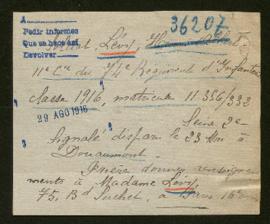 A
36207
Pedir informes
Que se hace así
Devolver
Soldat, Lévy,
11e Cie du 74e Régiment d'Infanterie
classe 1916, matricule 11.356/332
29 AGO 1916
Seine 2e
Signalé disparu le 23 Mai à
Douaumont.
Prière donner renseigne-
ments à Madame Lévy
75, Bd Suchet, à Paris 16e